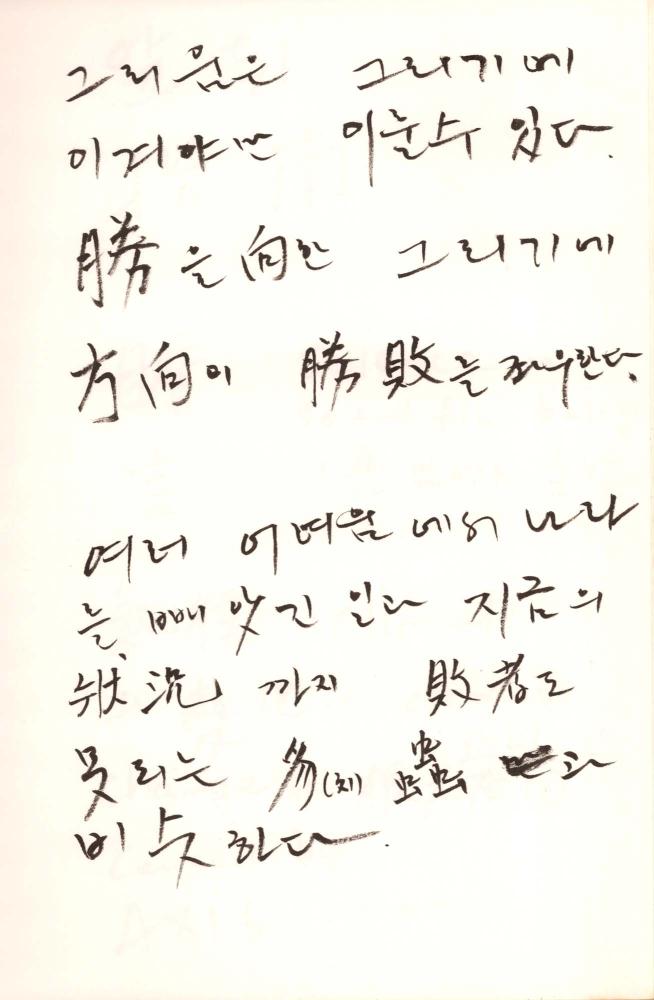 그리움은 그리기에
이겨야만 이룰수 있다.
勝을 向한 그리기에
方向이 勝敗를 좌우한다.
여러 어려움에서 나라
를 빼앗긴 일과 지금의
狀況까지 敗者도
못되는 (체) 蟲 과
비슷하다.